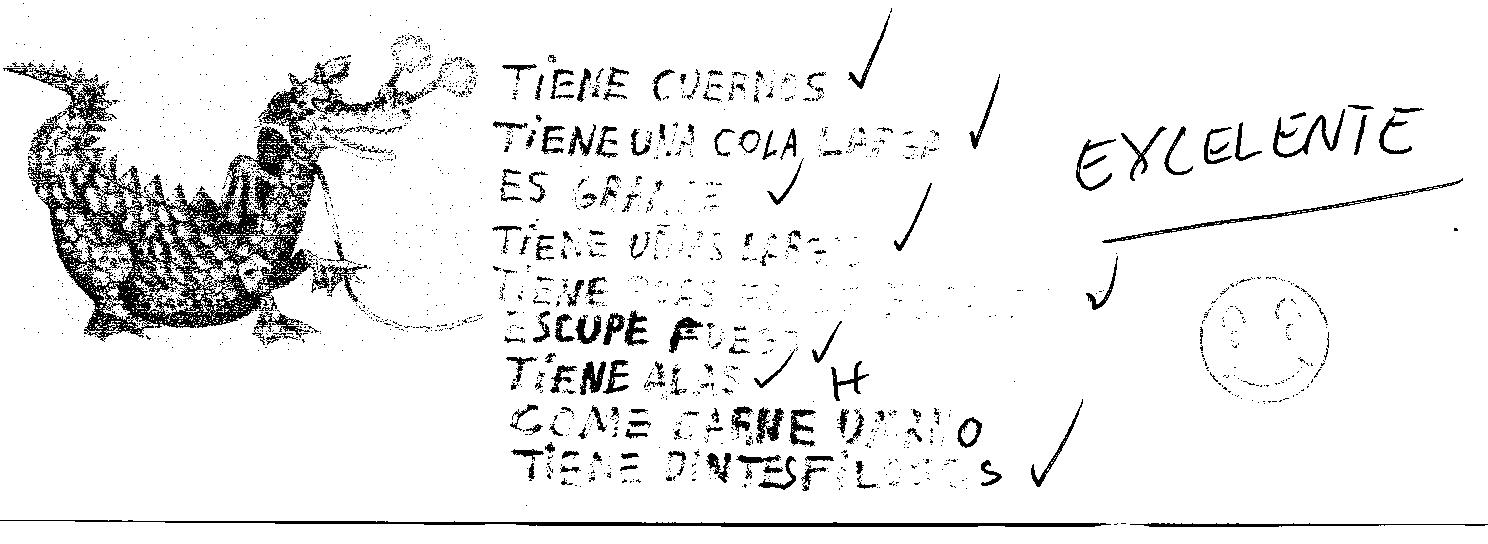 TIENE CUERNOS
TIENE UNA COLA LARGA
ES GRANDE
TIENE UÑAS LARGAS
TIENE PUAS
ESCUPE FUEGO
TIENE ALAS
H
COME CARNE UMANO
TIENE DINTES FILOSOS
EXCELENTE